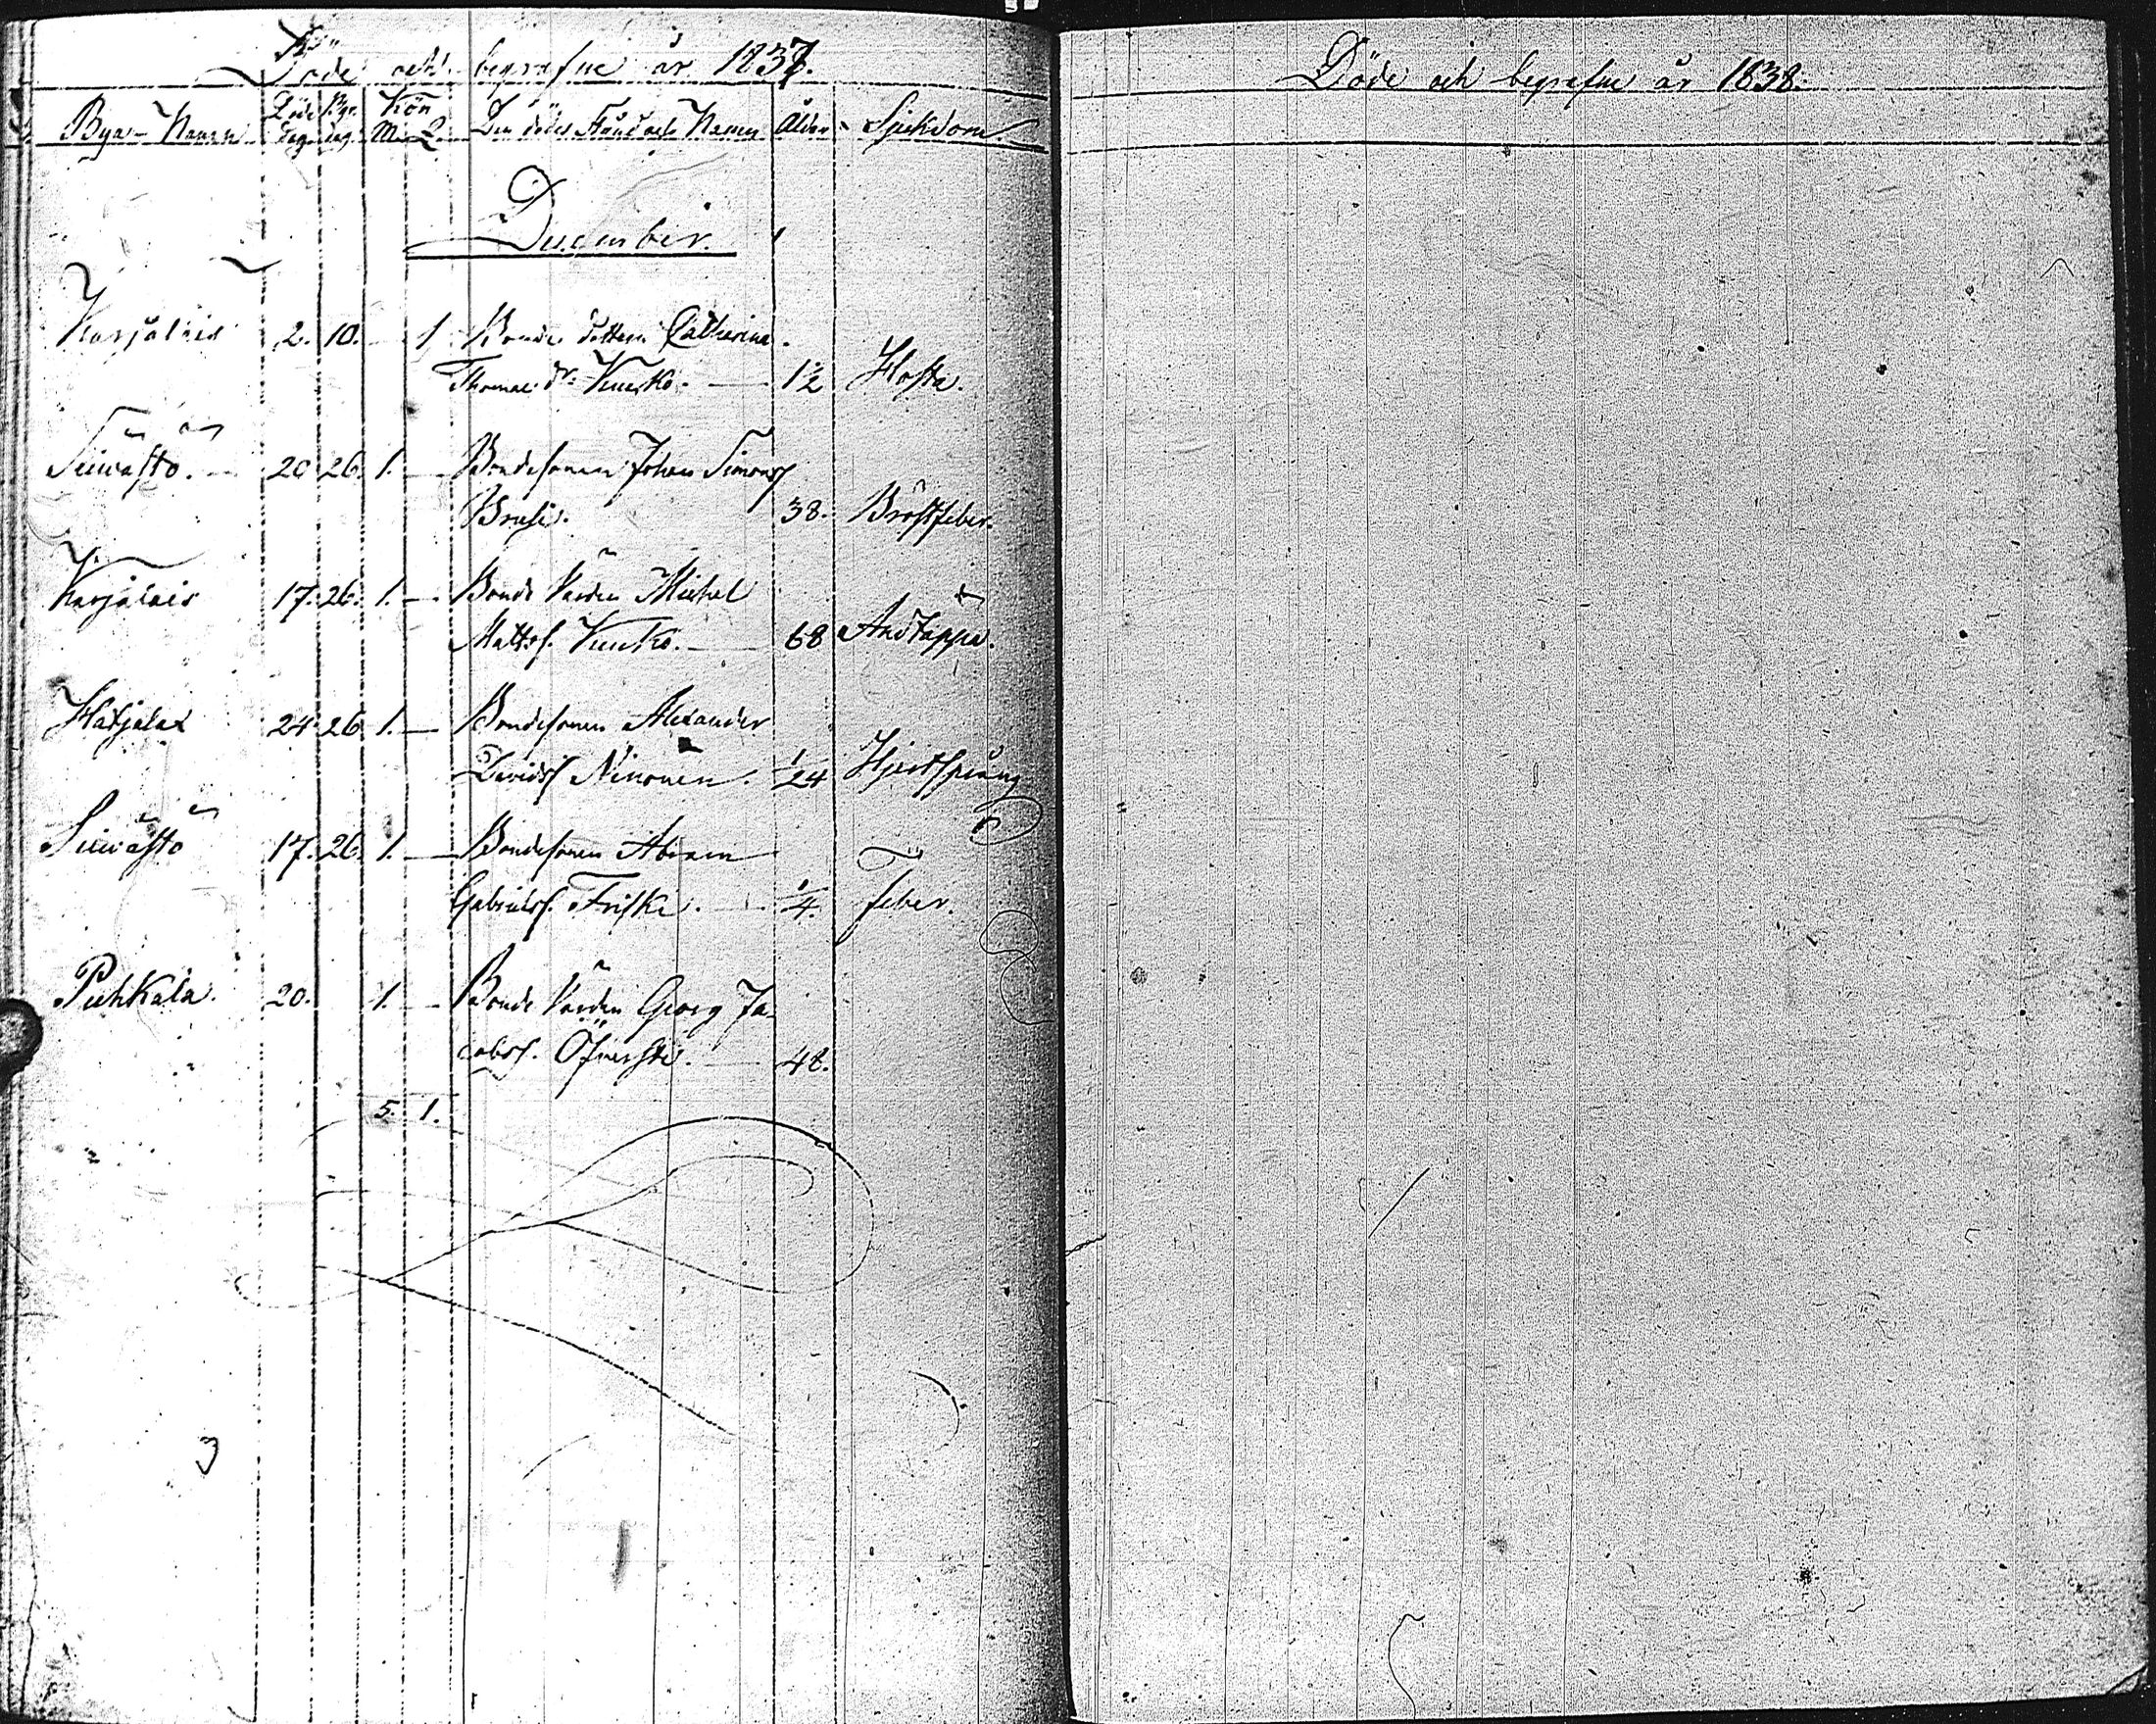 Döde och begrafne år 1837.
Bya-Namn Döde dag Begr. dag Kön M. Q. Den dödes Stånd och Namn Ålder Sjukdom
December.
Karjalais 2. 10. 1 Bonde dottern Catharina
Thomae dr. Kuusko. 1½ Hosta.
Seiwästö. 20 26 1. — Bondesonen Johan Simonss
Brusi. 38. Bröstfeber.
Karjalais 17. 26. 1. — Bonde Värden Michel
Mattss. Kuusko. 68 Andtäppa.
Hatjalax 24. 26 1. — Bondesonen Alexander
Davidss Ninonen. 1/24 Hjertsprång
Seiwästö 17. 26. 1. — Bondesonen Abram
Gabrielss. Friski. ¼ feber.
Puhkala. 20. 1. — Bonde Värden Georg Ja-
cobss. 48.
5. 1.
Döde och begrafne år 1838.